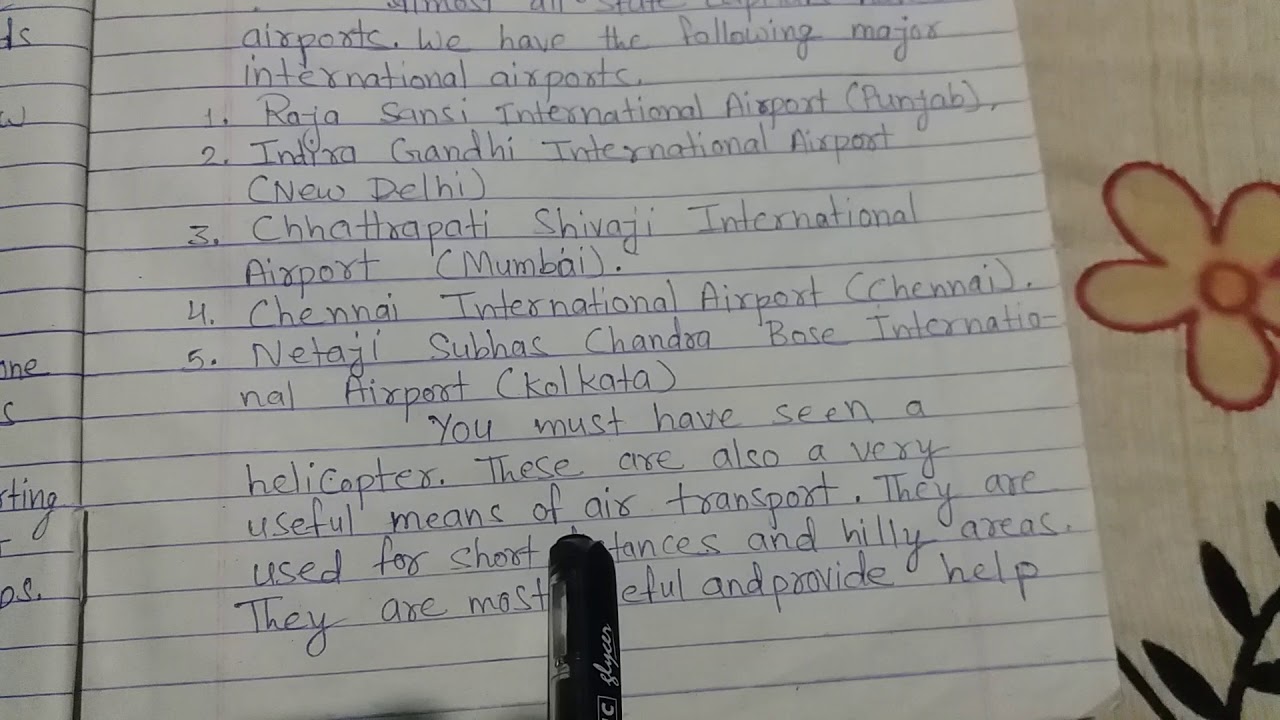 Almost all state
airports. We have the following major
international airports.
1. Raja Sansi International Airport (Punjab).
2. Indira Gandhi International Airport
(New Delhi)
3. Chhattrapati Shivaji International
Airport (Mumbai).
4. Chennai International Airport (Chennai).
5. Netaji Subhas Chandra Bose Internatio-
nal Airport (Kolkata)
You must have seen a
helicopter. These are also a very
useful means of air transport. They are
used for short tances and hilly areas.
They are most eful and provide help
ds
w
one
s
rting
ps.
glycer